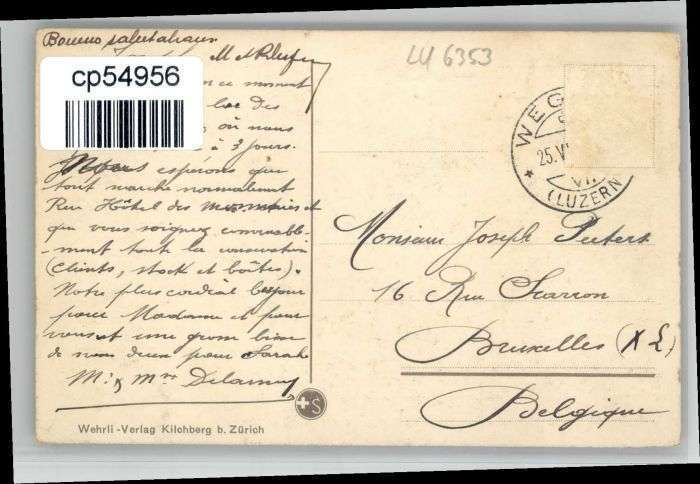 cp54956
LU 6353
M et Pl
en ce moment
lac des
où nous
à 3 jours.
Nous espérons que
tout marche normalement
Rue Hôtel des Monnaies et
que vous soignez convenable-
ment toute la
(Clients, stock et boîtes).
Notre plus cordial bonjour
pour Madame et pour
vous et une grosse bise
de nous deux pour Sarah
Mr & Mme Delannoy
Wehrli-Verlag Kilchberg b. Zürich
+S
WEG
25.VI
VII
(LUZERN
Monsieur Joseph Peeters
16 Rue Scarron
Bruxelles (XL)
Belgique